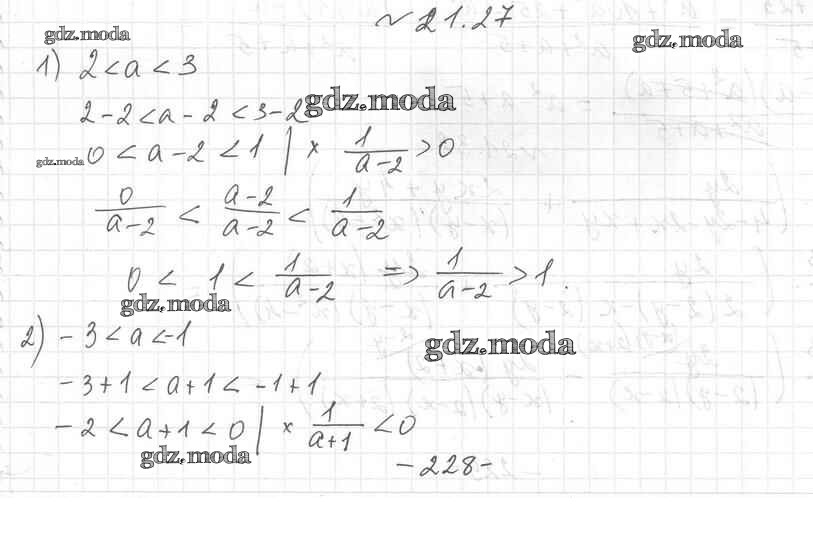 № 21.27
gdz.moda
gdz.moda
1) 2 < a < 3
2 - 2 < a - 2 < 3 - 2
gdz.moda
gdz.moda
0 < a - 2 < 1 | × 1/(a-2) > 0
0/(a-2) < (a-2)/(a-2) < 1/(a-2)
0 < 1 < 1/(a-2) => 1/(a-2) > 1.
gdz.moda
2) -3 < a < -1
gdz.moda
-3+1 < a+1 < -1+1
-2 < a+1 < 0 | × 1/(a+1) < 0
gdz.moda
-228-